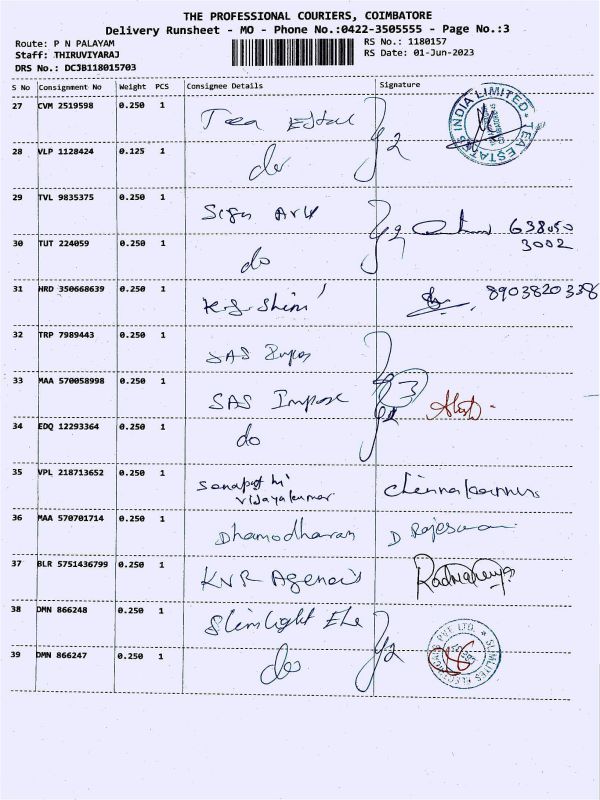 THE PROFESSIONAL COURIERS, COIMBATORE
Delivery Runsheet - MO - Phone No.:0422-3505555 - Page No.:3
Route: P N PALAYAM RS No.: 1180157
Staff: THIRUVIYARAJ RS Date: 01-Jun-2023
DRS No.: DCJB118015703
S No Consignment No Weight PCS Consignee Details Signature
27 CVM 2519598 0.250 1 Tea Estate 2 TEA ESTATES INDIA LIMITED
28 VLP 1128424 0.125 1 do
29 TVL 9835375 0.250 1 Sign Art 2 638050
3002
30 TUT 224059 0.250 1 do
31 HRD 350668639 0.250 1 K.S. Shini 8903820338
32 TRP 7989443 0.250 1 SAS
33 MAA 570058998 0.250 1 SAS Impex 3
34 EDQ 12293364 0.250 1 do
35 VPL 218713652 0.250 1 Vijayakumar
36 MAA 570701714 0.250 1 Dhamodharan D Rajeswari
37 BLR 5751436799 0.250 1 KNR Agencis
38 DMN 866248 0.250 1 Slimlight Ele 2 SLIMLITES ELECTRONICS PVT. LTD.
39 DMN 866247 0.250 1 do